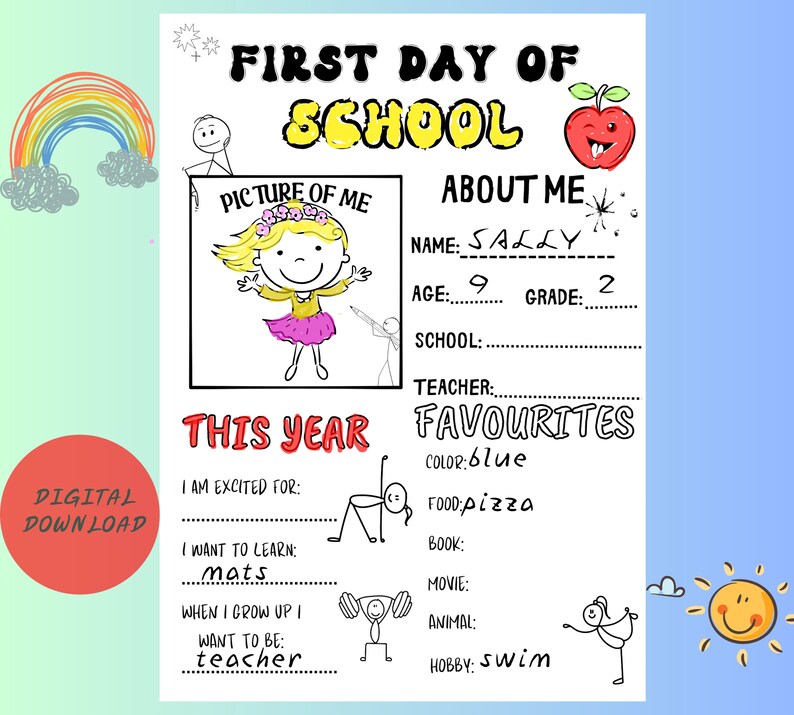 FIRST DAY OF
SCHOOL
PICTURE OF ME
ABOUT ME
NAME: SALLY
AGE: 9 GRADE: 2
SCHOOL:
TEACHER:
THIS YEAR
I AM EXCITED FOR:
I WANT TO LEARN:
mats
WHEN I GROW UP I
WANT TO BE:
teacher
FAVOURITES
COLOR: blue
FOOD: pizza
BOOK:
MOVIE:
ANIMAL:
HOBBY: swim
DIGITAL
DOWNLOAD